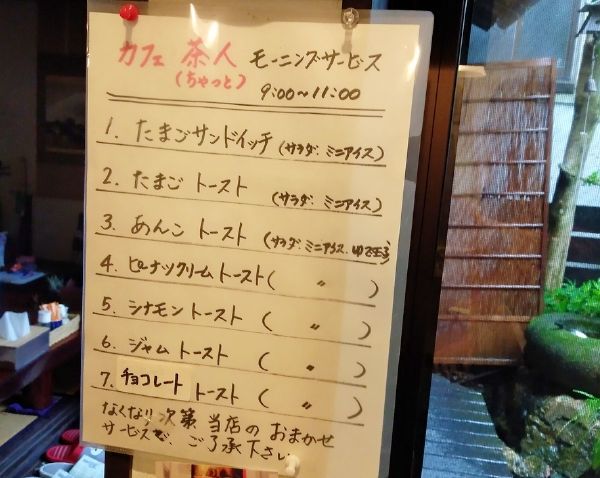 カフェ 茶人 モーニングサービス
(ちゃっと) 9:00〜11:00
1. たまごサンドイッチ (サラダ. ミニアイス)
2. たまご トースト (サラダ. ミニアイス)
3. あんこ トースト (サラダ. ミニアイス. ゆで玉子)
4. ピーナツクリームトースト ( 〃 )
5. シナモン トースト ( 〃 )
6. ジャム トースト ( 〃 )
7. チョコレート トースト ( 〃 )
なくなり 次第 当店の おまかせ
サービスで、ご了承下さい